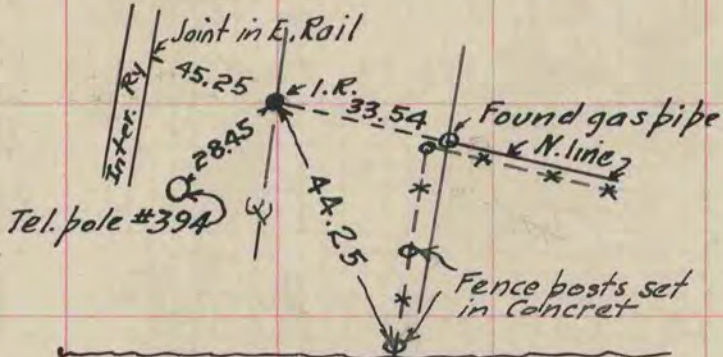 Joint in E. Rail
Inter. Ry
45.25
I.R.
33.54
Found gas pipe
N. line
28.45
Tel. pole #394
44.25
Fence posts set
in Concret